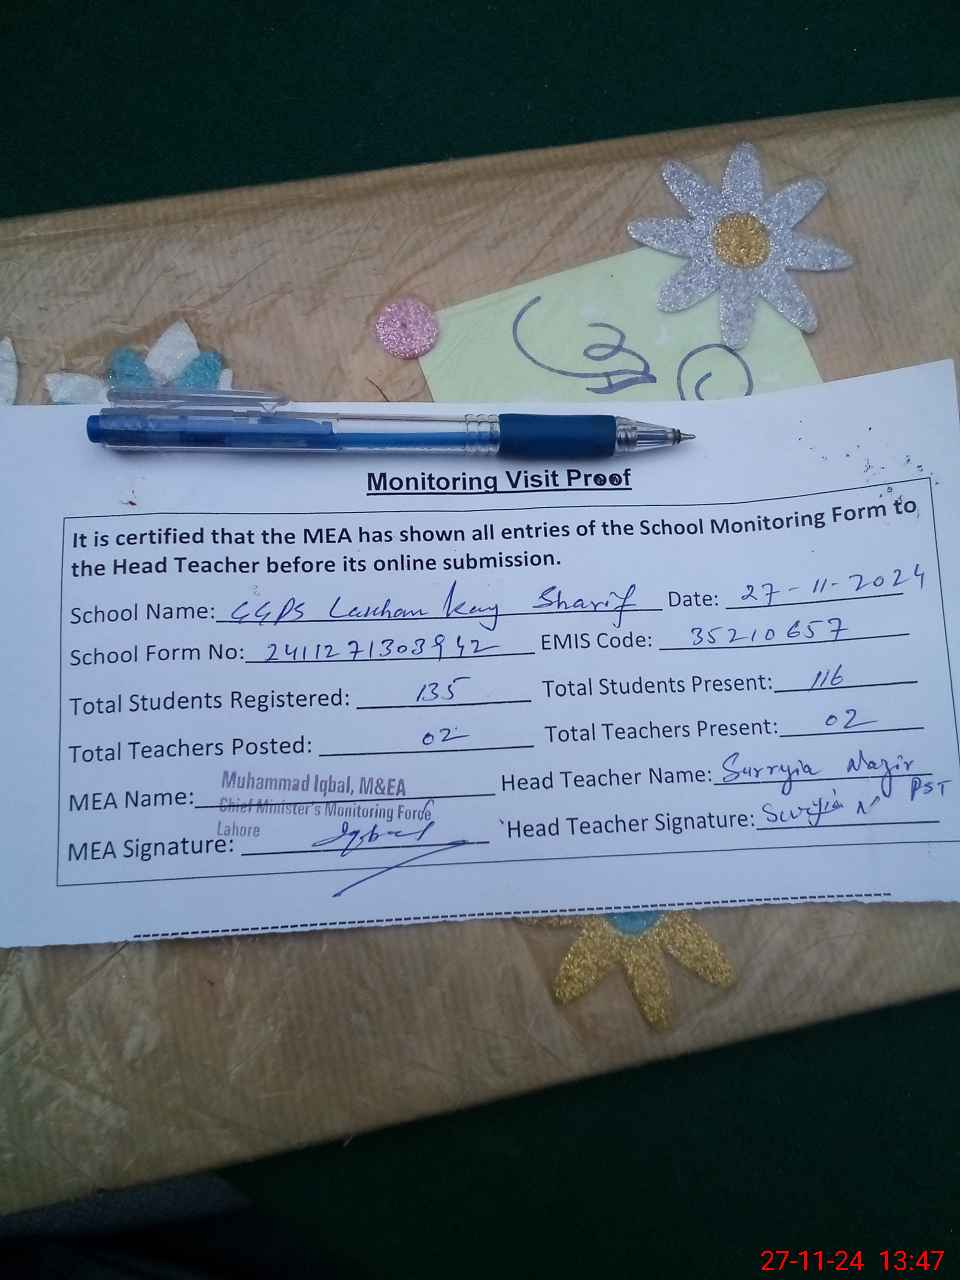 Monitoring Visit Proof
It is certified that the MEA has shown all entries of the School Monitoring Form to
the Head Teacher before its online submission.
School Name: GGPS Sharif Date: 27-11-2024
School Form No: EMIS Code: 35210657
Total Students Registered: 135 Total Students Present: 116
Total Teachers Posted: 02 Total Teachers Present: 02
MEA Name: Muhammad Iqbal, M&EA Head Teacher Name: Surryia Nazir
Chief Minister's Monitoring Force PST
Lahore
MEA Signature: Iqbal Head Teacher Signature: Surryia N
27-11-24 13:47